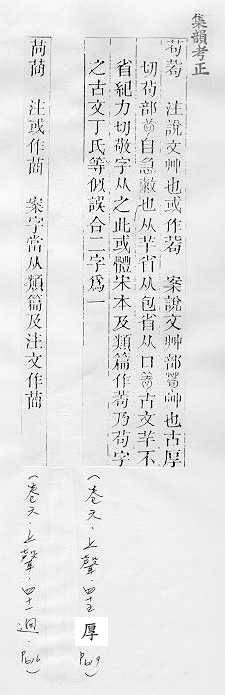 集韻考正
茍蒟 注說文艸也或作蒟 案說文艸部茍艸也古厚
切茍部茍自急敕也从羊省从包省从口𦰶古文羊不
省紀力切敬字从之此或體宋本及類篇作蒟乃茍字
之古文丁氏等似誤合二字爲一
(卷六.上聲.四十五厚 P619)
茼茼 注或作茼 案字當从類篇及注文作茼
(卷六.上聲.四十一迥.P616)